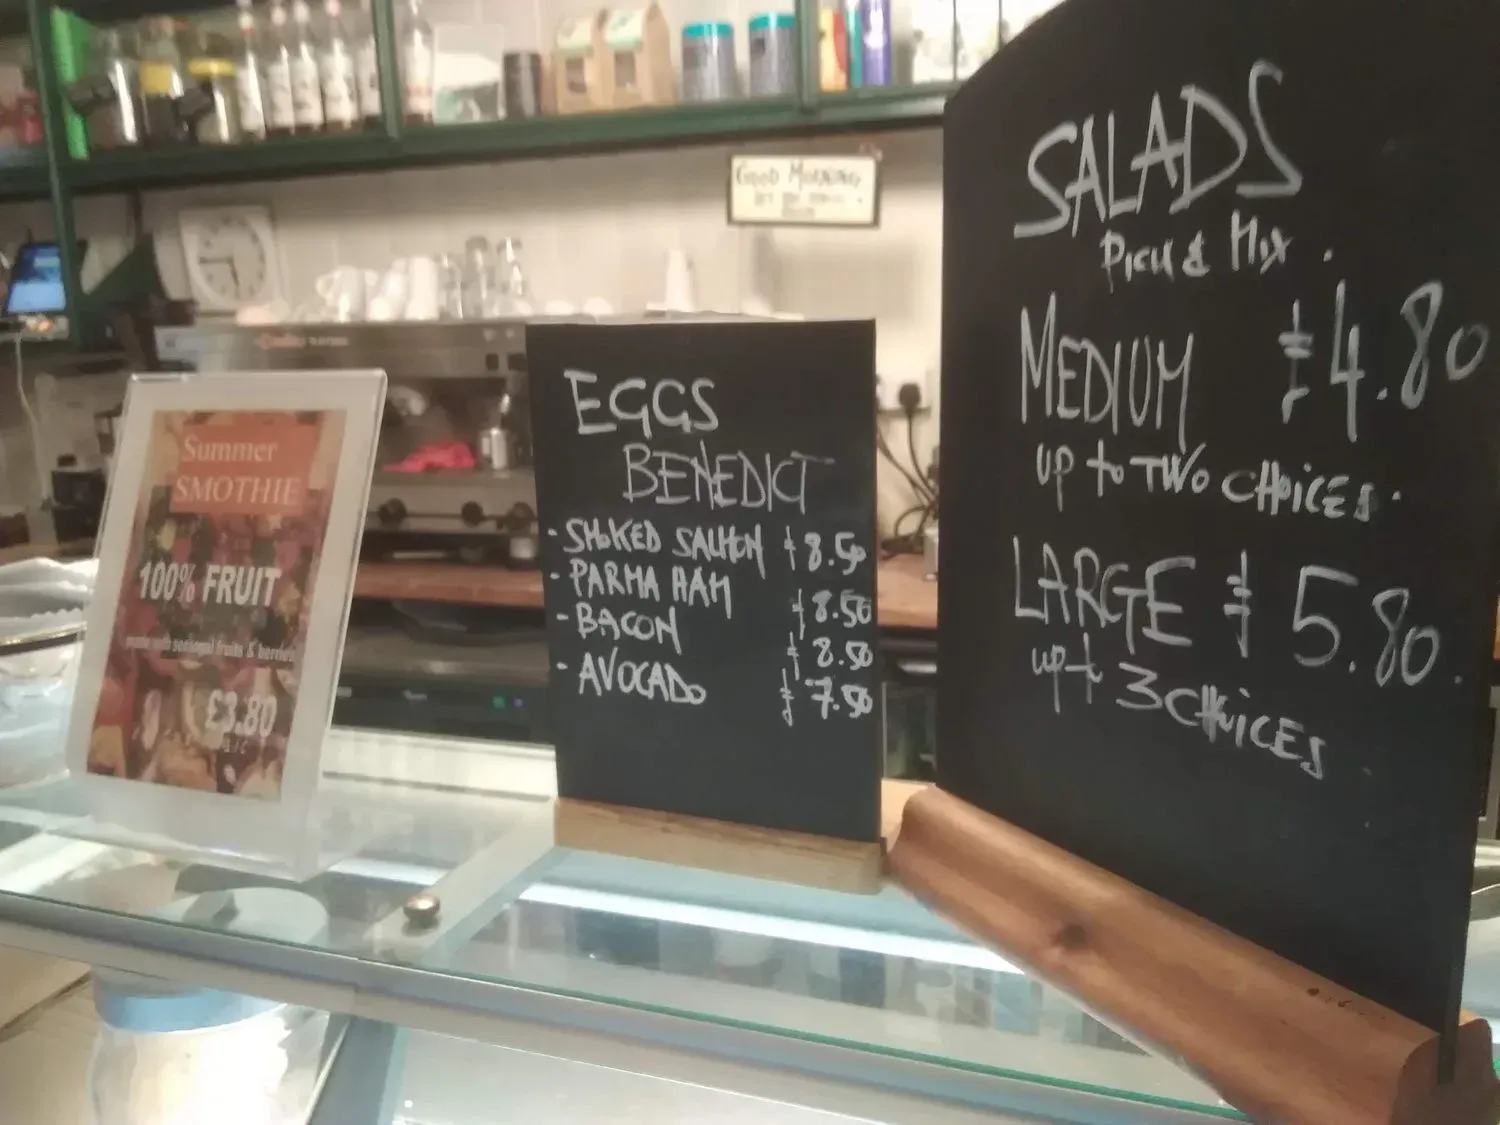 Summer
SMOTHIE
100% FRUIT
made with seasonal fruits & berries
£3.80
EGGS
BENEDICT
- SMOKED SALMON £8.50
- PARMA HAM £8.50
- BACON £8.50
- AVOCADO £7.50
SALADS
PICK & MIX.
MEDIUM £4.80
UP to TWO CHOICES.
LARGE £5.80.
up to 3 CHOICES
GOOD MORNING